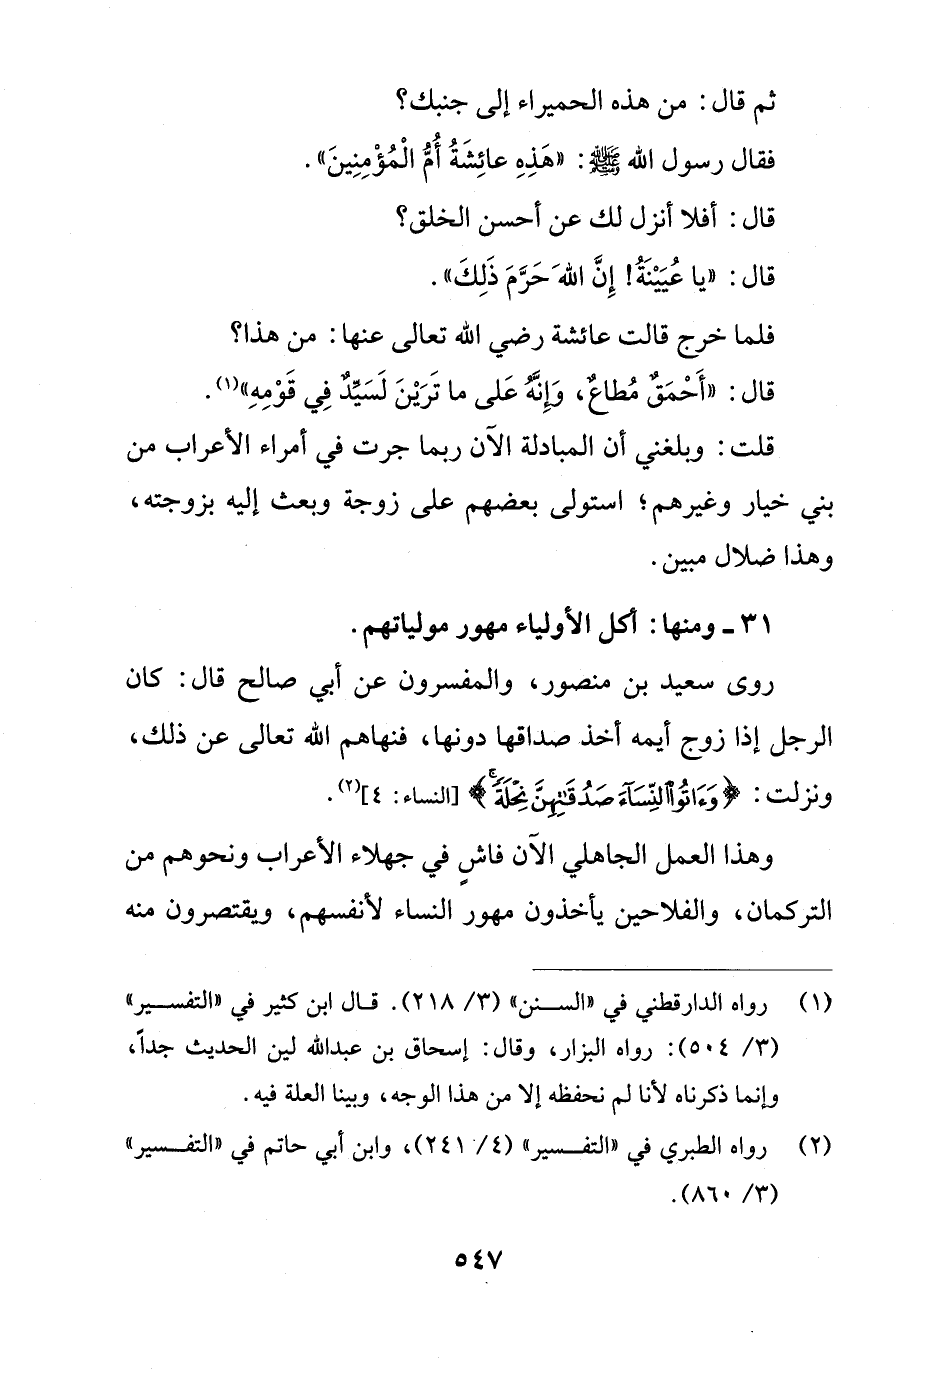 ثم قال: من هذه الحميراء إلى جنبك؟
فقال رسول الله ﷺ: «هَذِهِ عائِشَةُ أُمُّ الْمُؤْمِنِينَ».
قال: أفلا أنزل لك عن أحسن الخلق؟
قال: «يا عُيَيْنَةُ! إِنَّ اللهَ حَرَّمَ ذَلِكَ».
فلما خرج قالت عائشة رضي الله تعالى عنها: من هذا؟
قال: «أَحْمَقٌ مُطاعٌ، وَإِنَّهُ عَلى ما تَرَيْنَ لَسَيِّدٌ فِي قَوْمِهِ»(١).
قلت: وبلغني أن المبادلة الآن ربما جرت في أمراء الأعراب من
بني خيار وغيرهم؛ استولى بعضهم على زوجة وبعث إليه بزوجته،
وهذا ضلال مبين.
٣١ ـ ومنها: أكل الأولياء مهور مولياتهم.
روى سعيد بن منصور، والمفسرون عن أبي صالح قال: كان
الرجل إذا زوج أيمه أخذ صداقها دونها، فنهاهم الله تعالى عن ذلك،
ونزلت: ﴿وَءَاتُوا۟ ٱلنِّسَآءَ صَدُقَٰتِهِنَّ نِحْلَةًۚ﴾ [النساء: ٤](٢).
وهذا العمل الجاهلي الآن فاشٍ في جهلاء الأعراب ونحوهم من
التركمان، والفلاحين يأخذون مهور النساء لأنفسهم، ويقتصرون منه
(١) رواه الدارقطني في «السنن» (٣/ ٢١٨). قال ابن كثير في «التفسير»
(٣/ ٥٠٤): رواه البزار، وقال: إسحاق بن عبدالله لين الحديث جداً،
وإنما ذكرناه لأنا لم نحفظه إلا من هذا الوجه، وبينا العلة فيه.
(٢) رواه الطبري في «التفسير» (٤/ ٢٤١)، وابن أبي حاتم في «التفسير»
(٣/ ٨٦٠).
٥٤٧